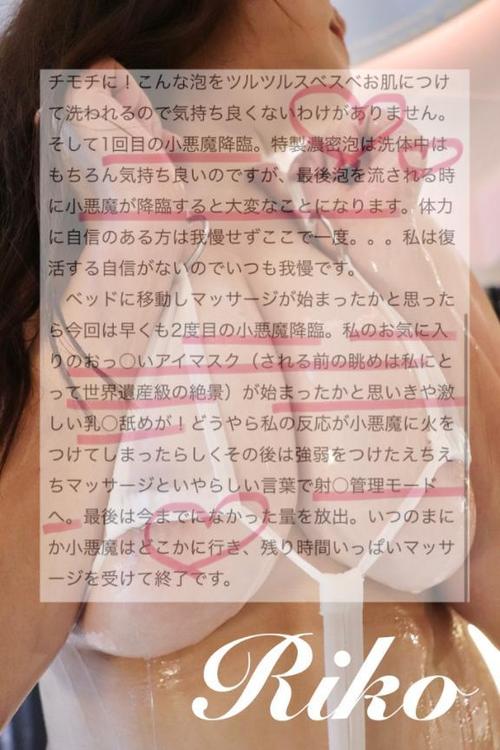 チモチに！こんな泡をツルツルスベスベお肌につけ
て洗われるので気持ち良くないわけがありません。
そして1回目の小悪魔降臨。特製濃密泡は洗体中は
もちろん気持ち良いのですが、最後泡を流される時
に小悪魔が降臨すると大変なことになります。体力
に自信のある方は我慢せずここで一度。。。私は復
活する自信がないのでいつも我慢です。
ベッドに移動しマッサージが始まったかと思った
ら今回は早くも2度目の小悪魔降臨。私のお気に入
りのおっ〇いアイマスク（される前の眺めは私にと
って世界遺産級の絶景）が始まったかと思いきや激
しい乳〇舐めが！どうやら私の反応が小悪魔に火を
つけてしまったらしくその後は強弱をつけたえちえ
ちマッサージといやらしい言葉で射〇管理モード
へ。最後は今までになかった量を放出。いつのまに
か小悪魔はどこかに行き、残り時間いっぱいマッサ
ージを受けて終了です。
Riko